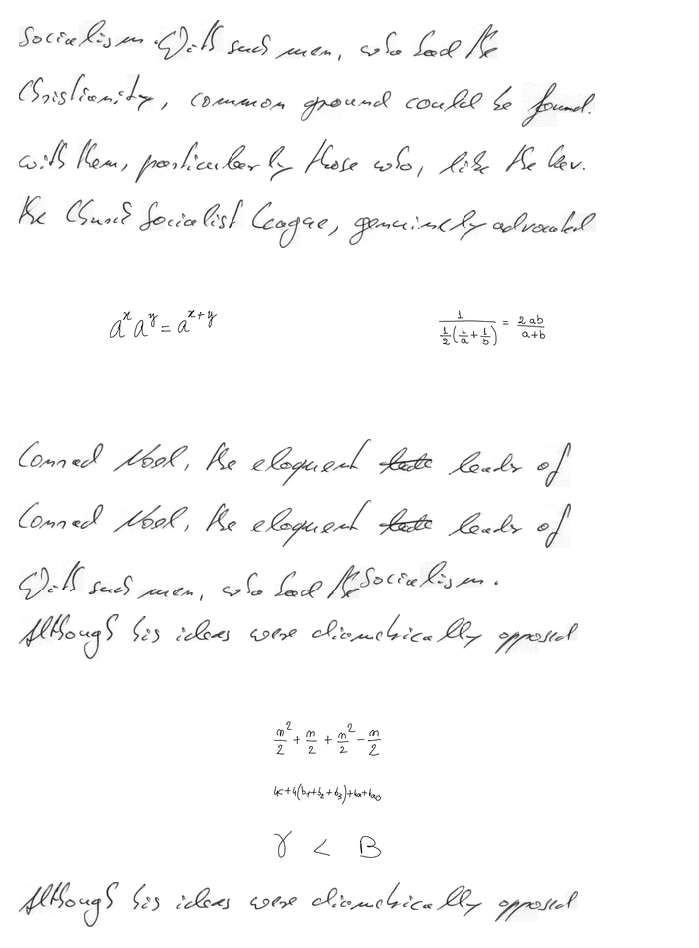 Socialism. With such men, who had the
Christianity, common ground could be found.
with them, particularly those who, like the Rev.
the Church Socialist League, genuinely advocated
a^x a^y = a^{x+y}
\frac{1}{\frac{1}{2}(\frac{1}{a}+\frac{1}{b})} = \frac{2ab}{a+b}
Conrad Noel, the eloquent leader of
Conrad Noel, the eloquent leader of
With such men, who had the Socialism.
Although his ideas were diametrically opposed
\frac{m^2}{2}+\frac{m}{2}+\frac{m^2}{2}-\frac{m}{2}
γ < B
Although his ideas were diametrically opposed